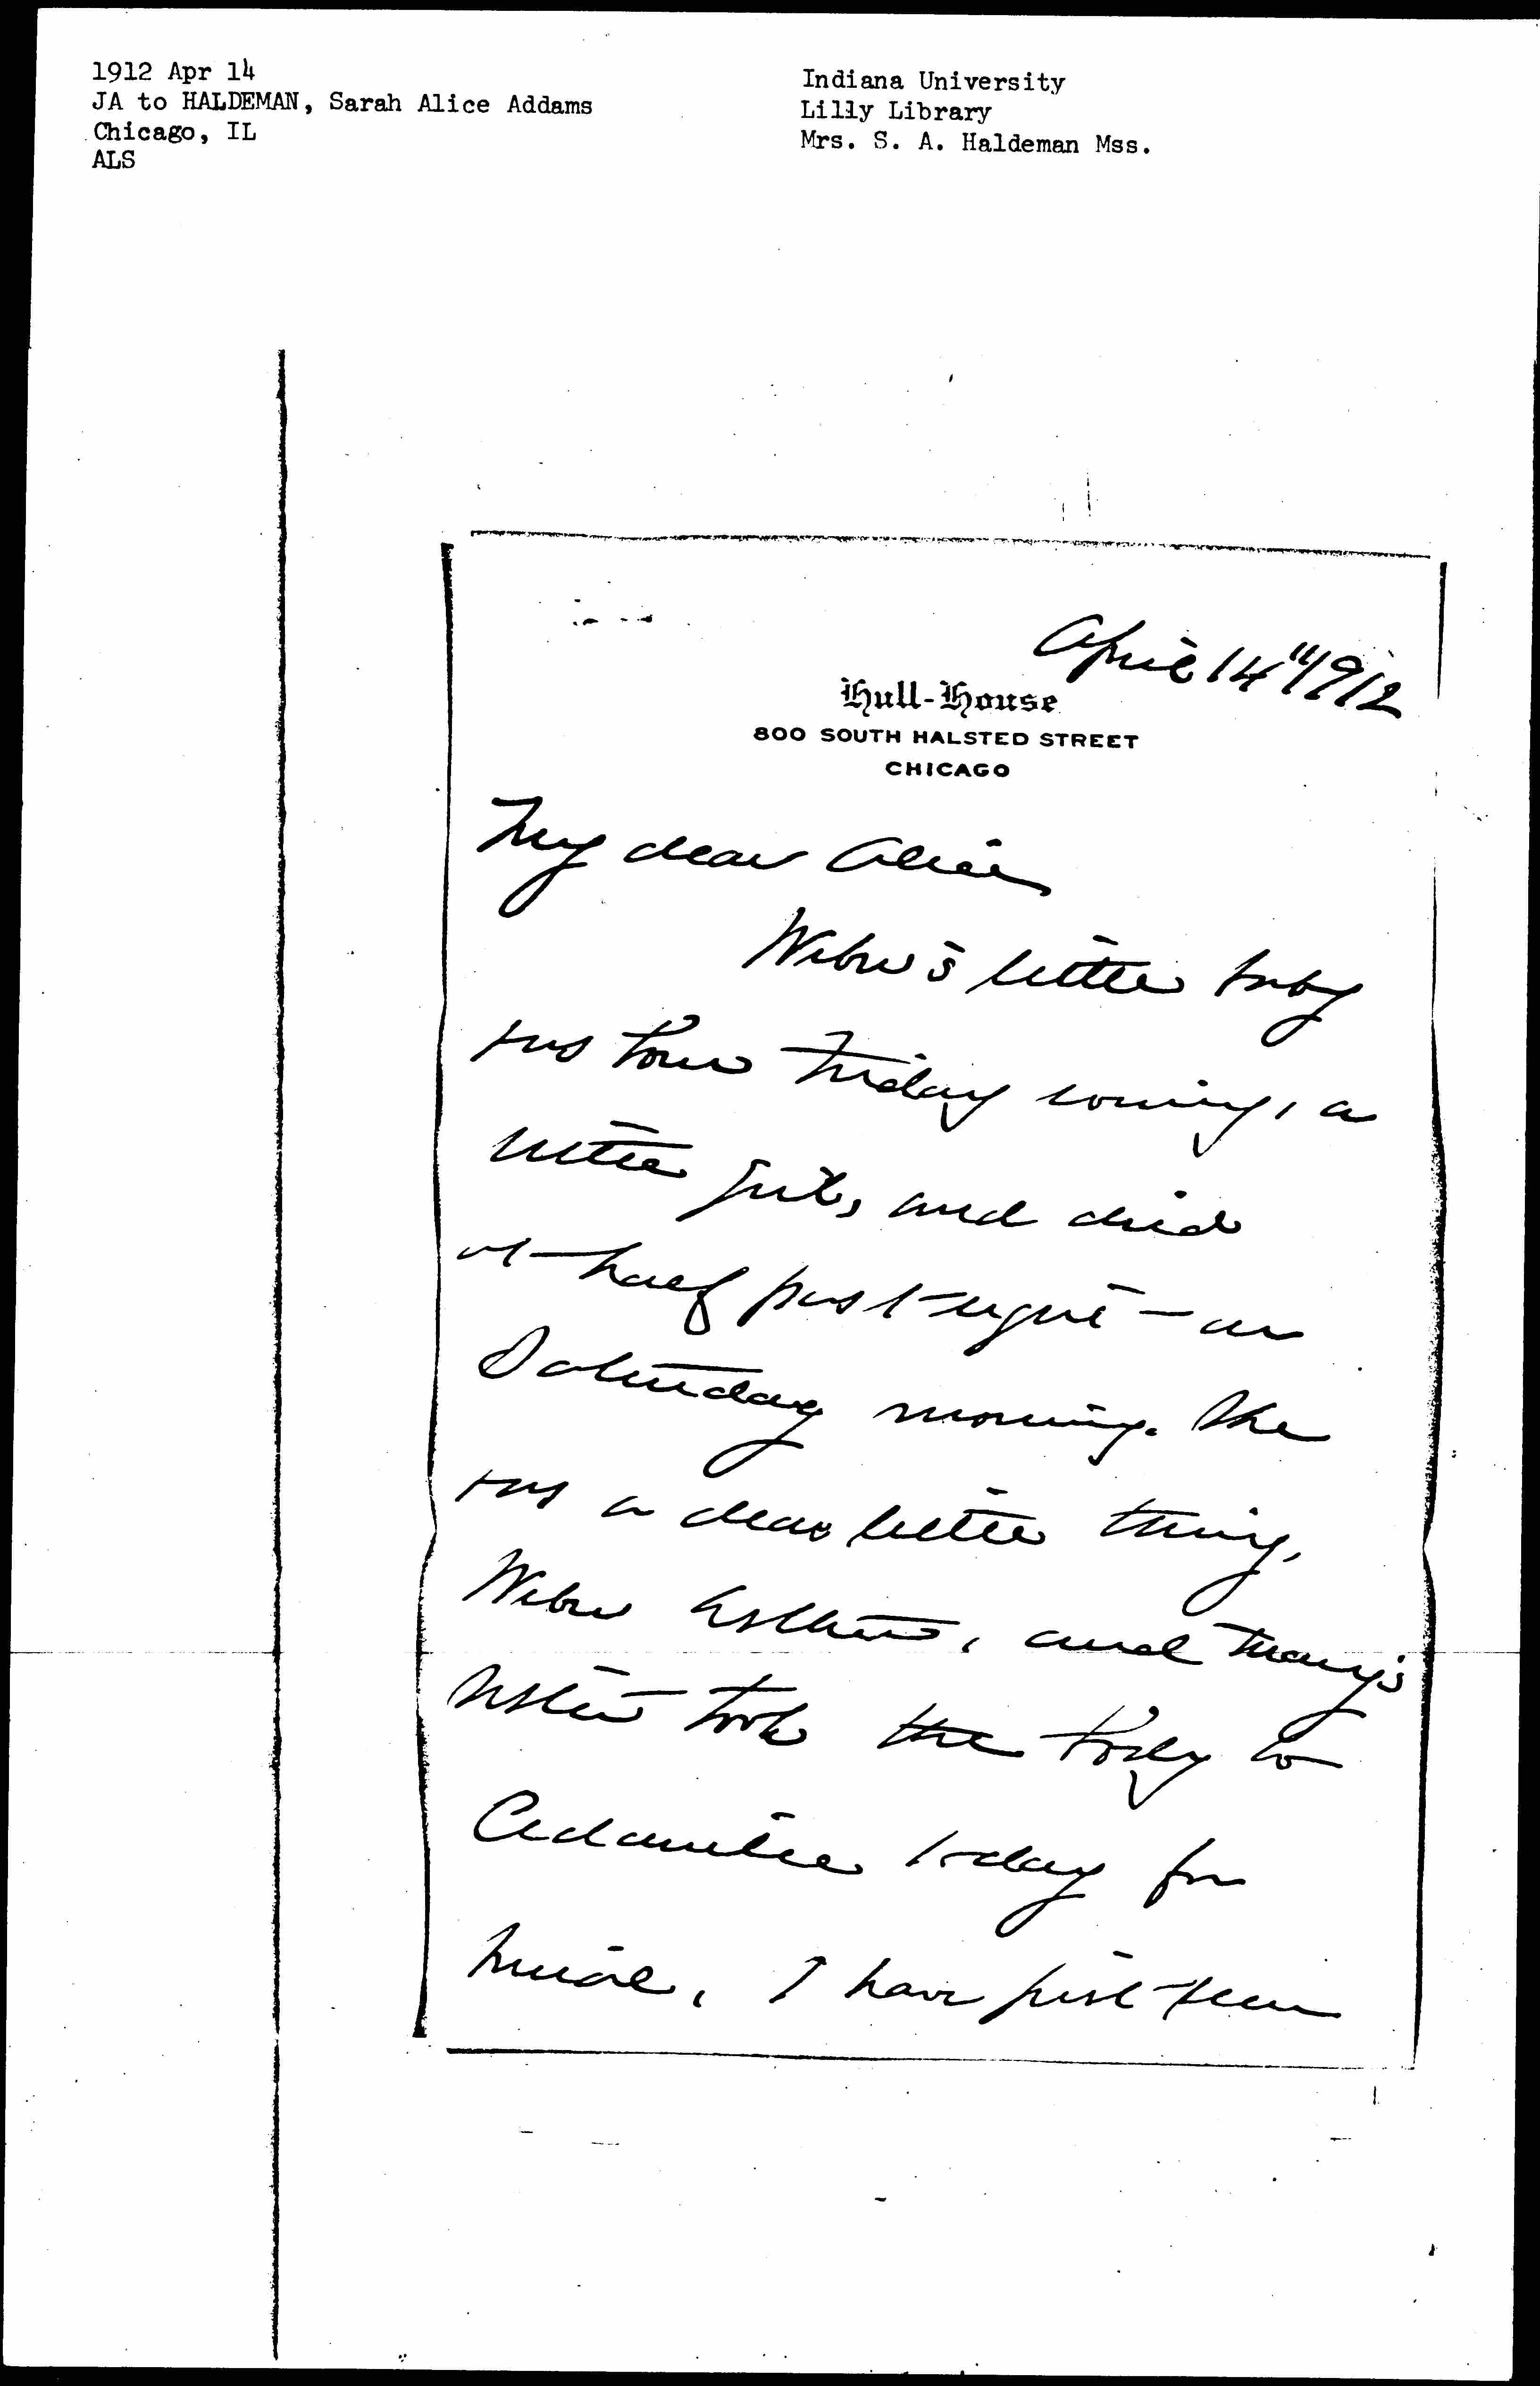 1912 Apr 14
JA to HALDEMAN, Sarah Alice Addams
Chicago, IL
ALS
Indiana University
Lilly Library
Mrs. S. A. Haldeman Mss.
April 14" 1912
Hull-House
800 SOUTH HALSTED STREET
CHICAGO
My dear Alice
Weber's little baby
was born Friday evening, a
little girl, and died
at half past eight on
Saturday morning. She
was a dear little thing,
Weber Esther, and Mary's
sister took the body to
Cedarville to-day for
burial. I have just been